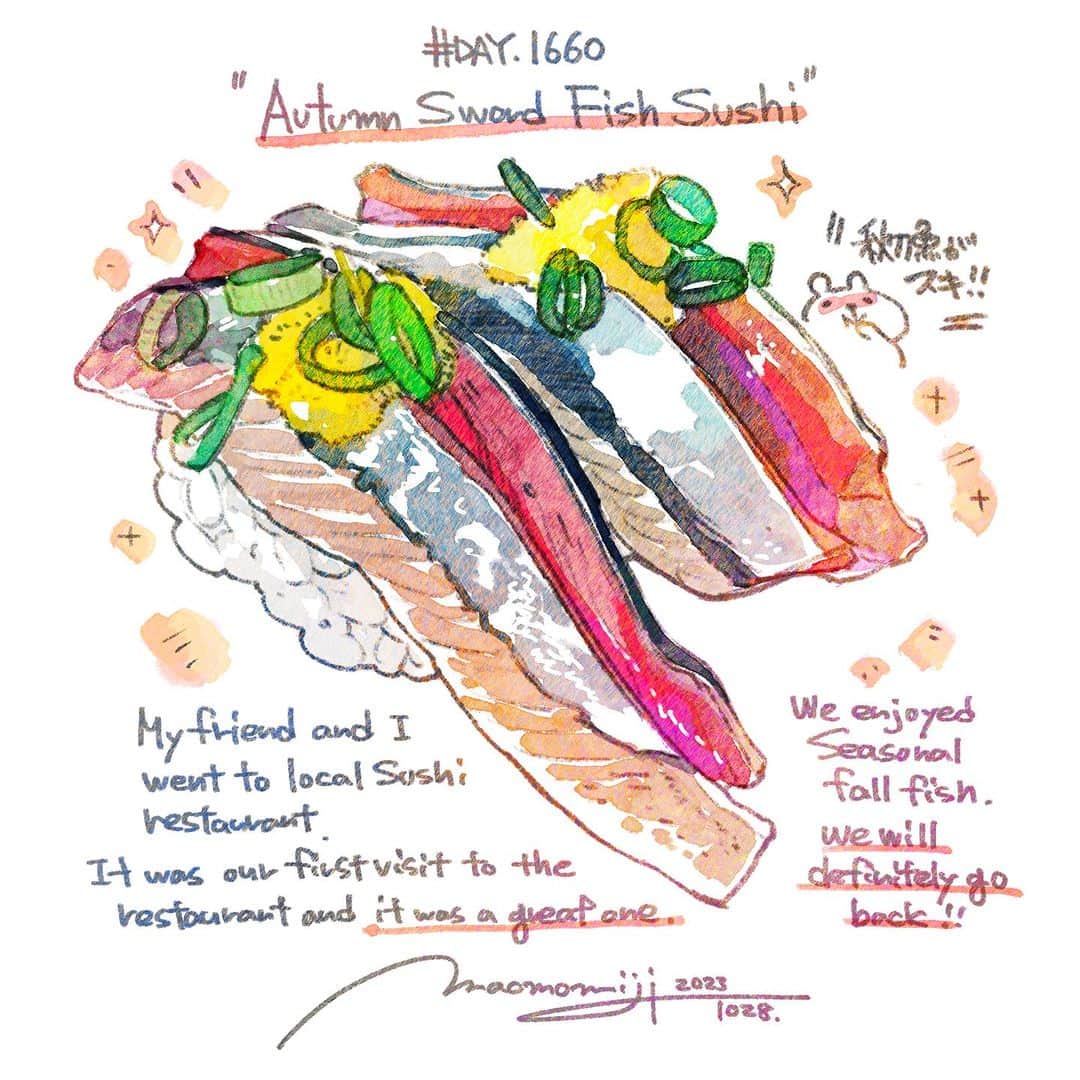 #DAY.1660
"Autumn Sword Fish Sushi"
"秋刀魚が
スキ!!
My friend and I
went to local Sushi
restaurant.
It was our first visit to the
restaurant and it was a great one.
We enjoyed
Seasonal
fall fish.
we will
definitely go
back!!
maomomiji 2023
1028.